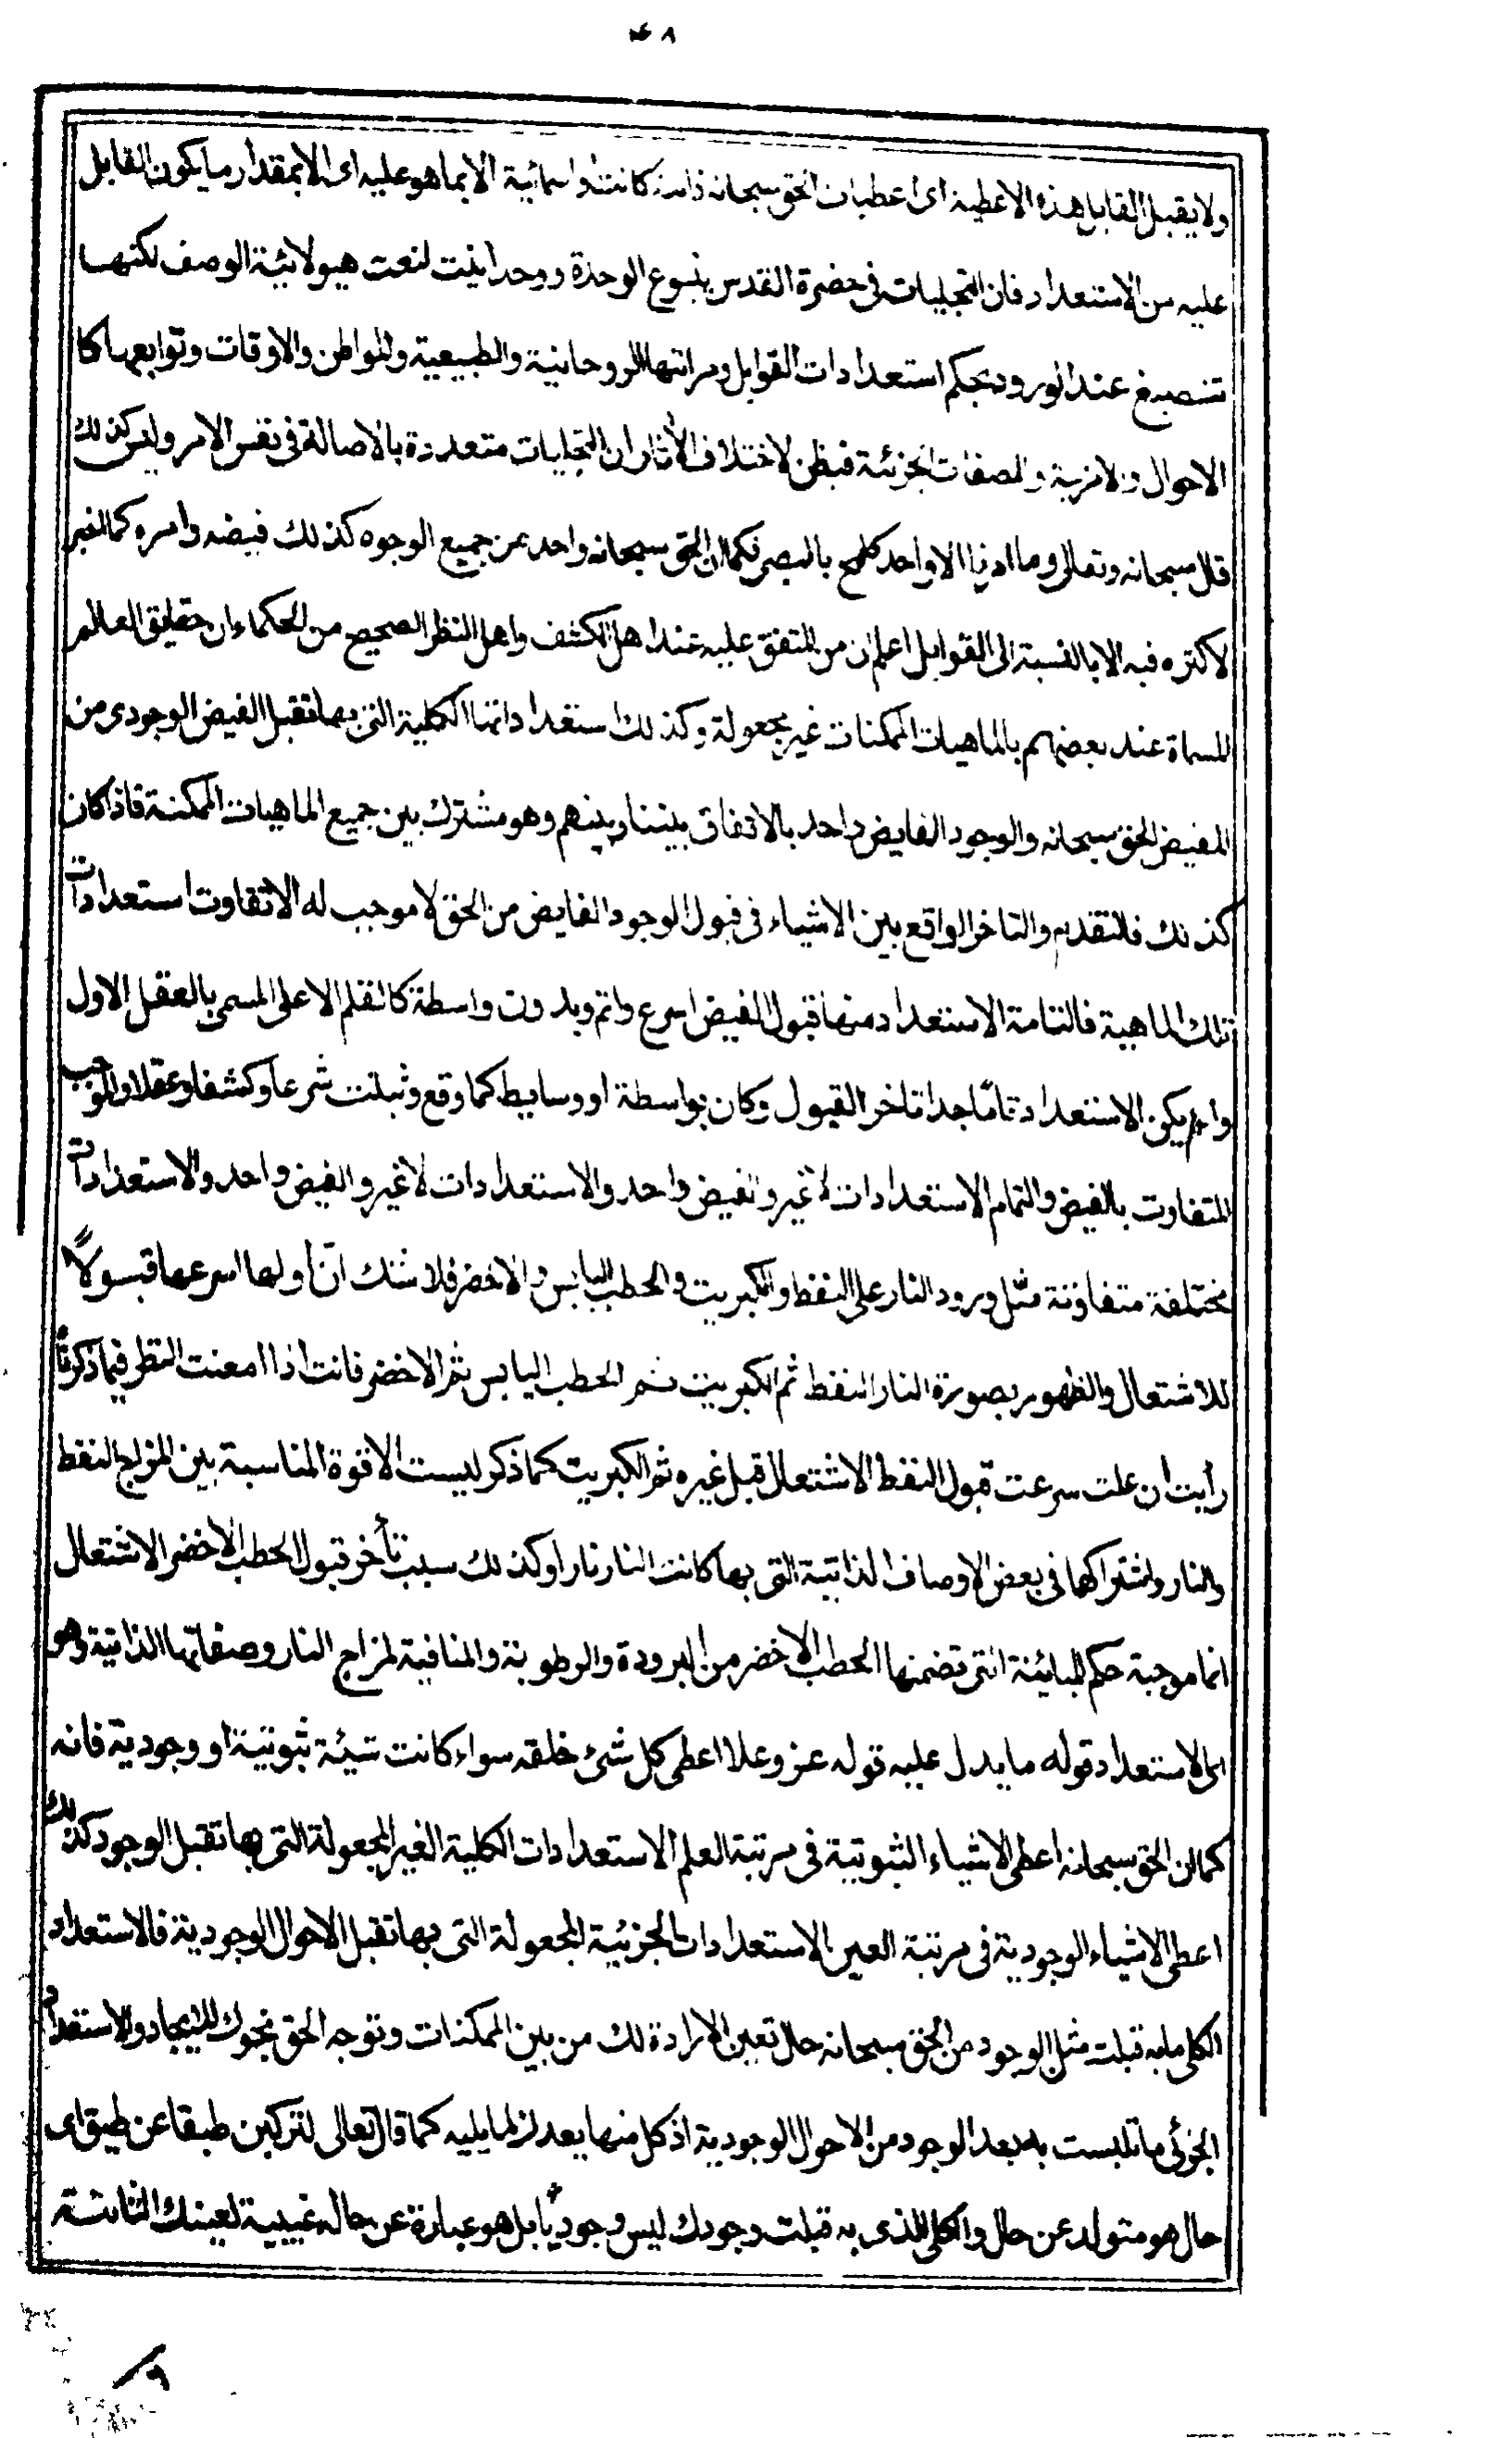 ٤٨
ولا يقبل القابل هذه الاعطية اى اعطيات الحق سبحانه ذاتية كانت واسمائية الا بما هو عليه اى الا بمقدار ما يكون القابل
عليه من الاستعداد فان التجليات فى حضرة القدس ينبوع الوحدة ووحدانيت لنعت هيولانيّة الوصف لكنها
تنصبغ عند الورود بحكم استعدادات القوابل ومراتبها الروحانية والطبيعية والمواطن والاوقات وتوابعها كا
الاحوال والامزجة والصفات الجزئية فيظن لاختلاف الأثار ان التجليات متعددة بالاصالة فى نفس الامر وليس كذلك
قال سبحانه وتعالى وما امرنا الا واحد كلمح بالبصر فكما ان الحق سبحانه واحد من جميع الوجوه كذلك فيضه وامره كما اخبر
لا كثره فيه الا بالنسبة الى القوابل اعلم ان من المتفق عليه عند اهل الكشف واهل النظر الصحيح من الحكماء ان حقايق العالم
المسماة عند بعضهم بالماهيات الممكنات غير مجعولة وكذلك استعداداتها الكلية التى بها تقبل الفيض الوجودى من
المفيض الحق سبحانه والوجود الفايض واحد بالاتفاق بيننا وبينهم وهو مشترك بين جميع الماهيات الممكنة فاذا كان
كذلك فالتقدم والتاخر الواقع بين الاشياء فى قبول الوجود الفايض من الحق لا موجب له الا تفاوت استعدادات
تلك الماهية فالتامة الاستعداد منها قبول الفيض اسرع واتم وبدون واسطة كالقلم الاعلى المسمى بالعقل الاول
وان لم يكن الاستعداد تامّا جدا تاخر القبول وكان بواسطة او وسايط كما وقع وثبلت شرعا وكشفا وعقلا والموجب
المتفاوت بالفيض والتمام الاستعدادات لا غير والفيض واحد والاستعدادات لا غير والفيض واحد والاستعدادات
مختلفة متفاوتة مثل ورود النار على النفط والكبريت والحطب اليابس والاخضر فلا شك انّ اولها اسرعها قبولاً
للاشتعال والظهور بصورة النار النفط ثم الكبريت ثم الحطب اليابس ثم الاخضر فانت اذا امعنت النظر فيما ذكرنا
رأيت ان علت سرعت قبول النفط الاشتعال قبل غيره ثم الكبريت كما ذكر ليست الا قوة المناسبة بين المزاج النفط
والنار واشتراكها فى بعض الاوصاف الذاتية التى بها كانت النار نارا وكذلك سبب تأخر قبول الحطب الاخضر الاشتعال
انما موجبة حكم المباينة التى تضمنها الحطب الاخضر من البرودة والرطوبة والمنافية لمزاج النار وصفاتها الذاتية وهو
اى الاستعداد قوله ما يدل عليه قوله عز وعلا اعطى كل شئ خلقه سواء كانت شيئة ثبوتية او وجودية فانه
كما ان الحق سبحانه اعطى الاشياء الثبوتية فى مرتبة العلم الاستعدادات الكلية الغير المجعولة التى بها تقبل الوجود كذلك
اعطى الاشياء الوجودية فى مرتبة العين الاستعدادات الجزئية المجعولة التى بها تقبل الاحوال الوجودية فالاستعداد
الكلى ما به قبلت مثل الوجود من الحق سبحانه حال تعين الارادة لك من بين الممكنات وتوجه الحق نحوك للايجاد والاستعداد
الجزئى ما تلبست به بعد الوجود من الاحوال الوجودية اذ كل منها يعد لزلما يليه كما قال تعالى لتركبن طبقا عن طبق اى
حال هو متولد عن حال والكلى الذى به قبلت وجودك ليس وجوديّا بل هو عبارة عن حاله غيبية لعينك الثابتة